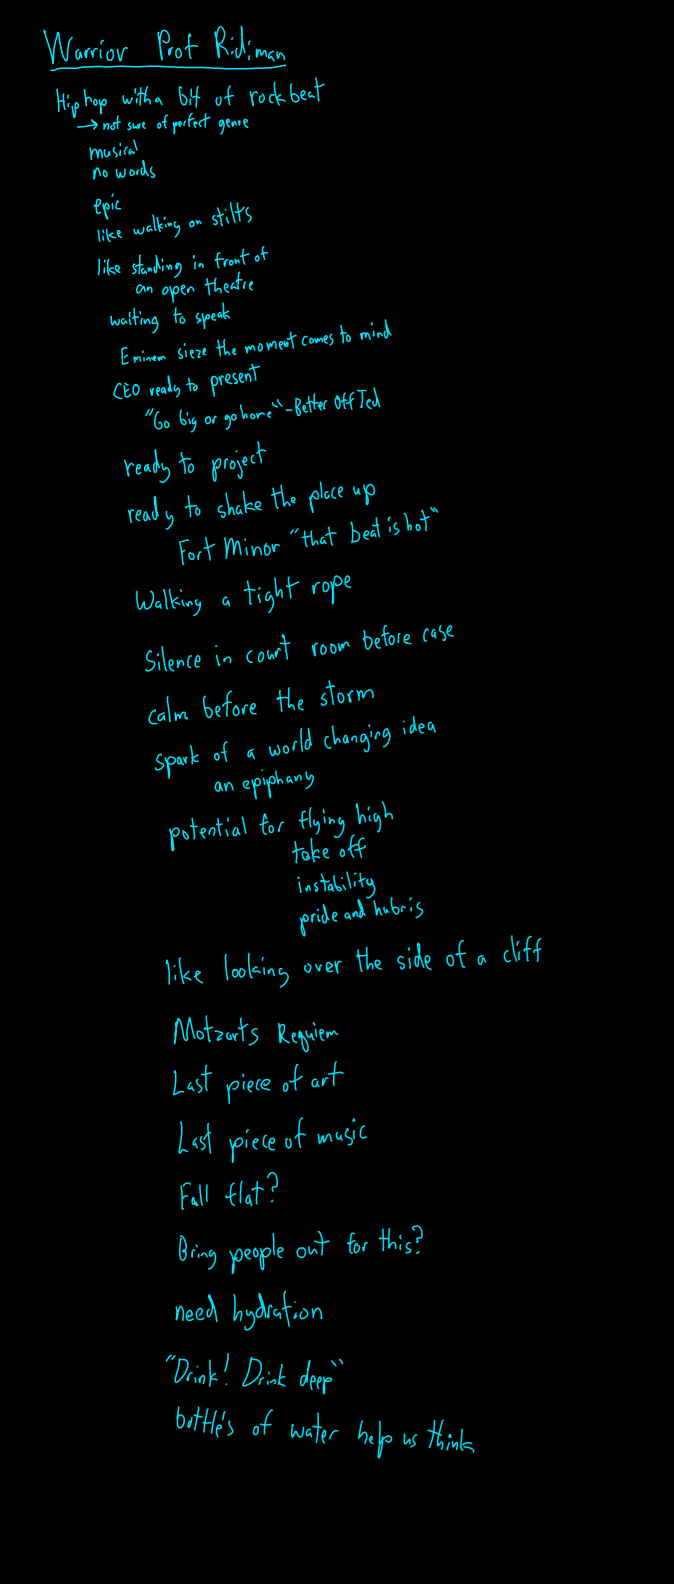 Warrior Prof Ridiman
Hip hop with a bit of rock beat
→ not sure of perfect genre
musical
no words
epic
like walking on stilts
like standing in front of
an open theatre
waiting to speak
Eminem sieze the moment comes to mind
CEO ready to present
"Go big or go home" - Better Off Ted
ready to project
ready to shake the place up
Fort Minor "that beat is hot"
Walking a tight rope
Silence in court room before case
calm before the storm
spark of a world changing idea
an epiphany
potential for flying high
take off
instability
pride and hubris
like looking over the side of a cliff
Motzarts Requiem
Last piece of art
Last piece of music
Fall flat?
Bring people out for this?
need hydration
"Drink! Drink deep"
bottle's of water help us think